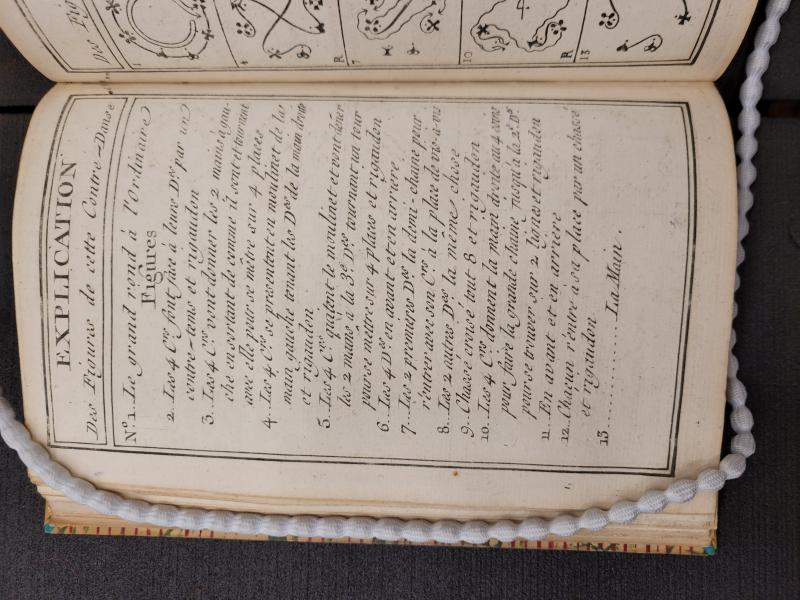 EXPLICATION
Des Figures de cette Contre-Danse
Nº. 1. Le grand rond à l'Ordinaire
Figures
2. Les 4 Crs font face à leurs Des par un
contre-tems et rigaudon
3. Les 4 Crs vont donner les 2 mains à gau-
che en sortant de comme il sont et tournent
avec elle pour se mètre sur 4 places
4. Les 4 Crs se presentent en moulinet de la
main gauche tenant les Des de la main droite
et rigaudon
5. Les 4 Crs quittent le moulinet et vont doner
les 2 mains à la 3e. Des tournant un tour
pour se mettre sur 4 places et rigaudon
6. Les 4 Des en avant et en arriere
7. Les 2 premieres Des la demi-chaine pour
r'entrer avec son Crs à la place de vis-à-vis
8. Les 2 autres Des la même chose
9. Chassé croisé tout 8 et rigaudon
10. Les 4 Crs donnent la main droite au 4 coins
pour faire la grande chaine jusqu'à la 3e. De.
pour se trouver sur 2 lignes et rigaudon
11. En avant et en arriere
12. Chacun r'entre à sa place par un chassé
et rigaudon
13 ............ La Main.
1
4
R
7
10
R
13